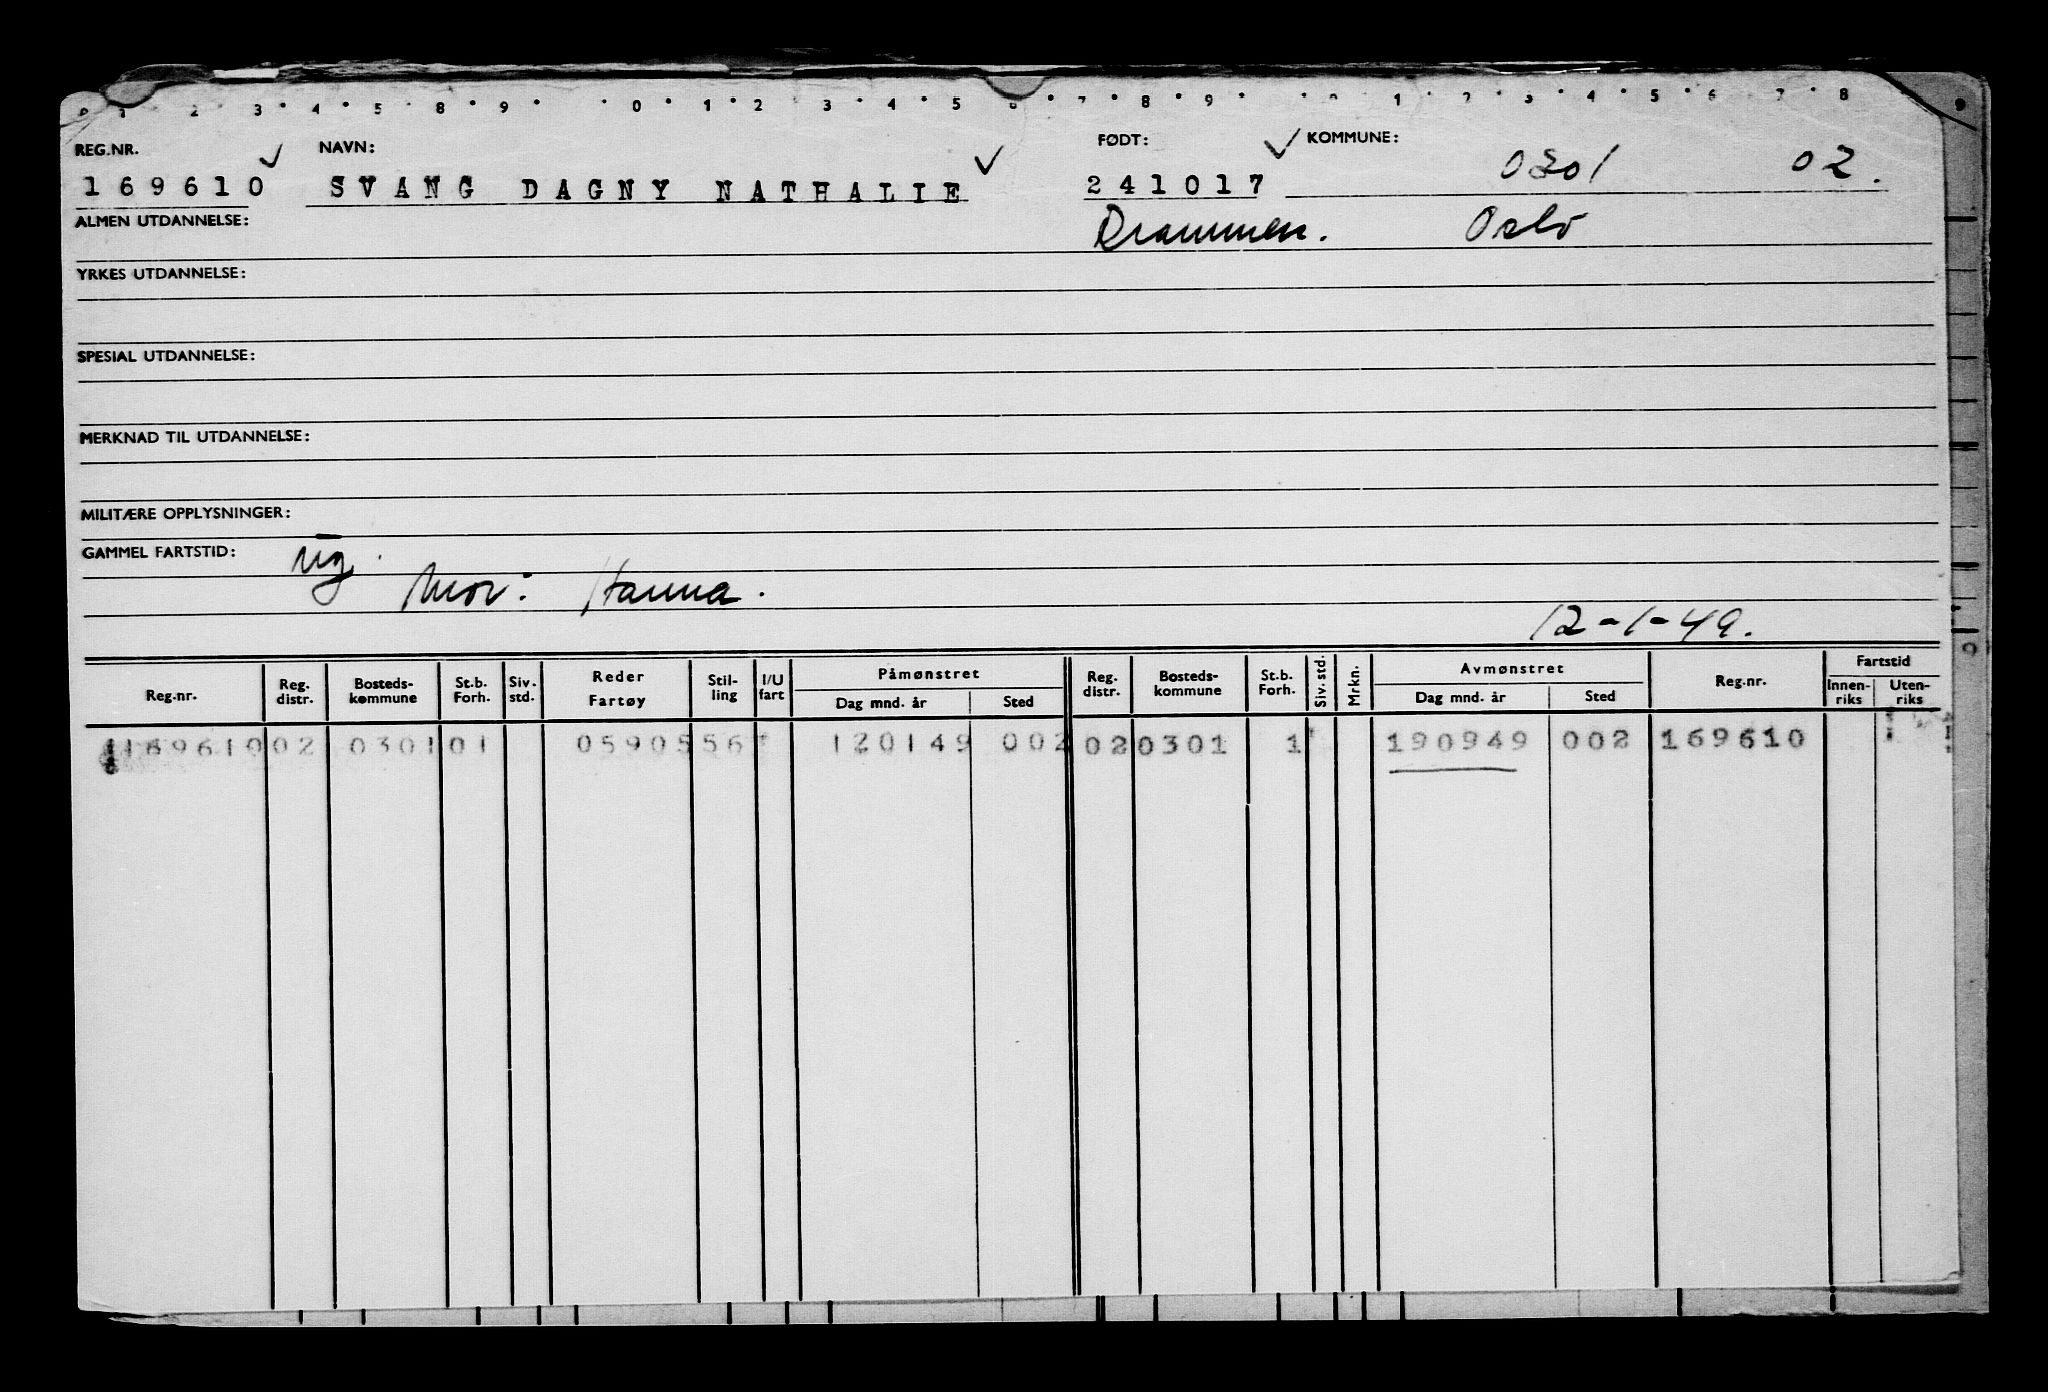 1 2 3 4 5 8 9 0 1 2 3 4 5 6 7 8 9 1 2 3 4 5 6 7 8 9
REG.NR. NAVN: FØDT: KOMMUNE:
169610 SVANG DAGNY NATHALIE 241017 0301 02.
ALMEN UTDANNELSE: Drammen. Oslo
YRKES UTDANNELSE:
SPESIAL UTDANNELSE:
MERKNAD TIL UTDANNELSE:
MILITÆRE OPPLYSNINGER:
GAMMEL FARTSTID: Ug.
Mor: Hanna.
12-1-49.
Reg.nr. Reg. distr. Bosteds-kommune St.b. Forh. Siv. std. Reder Fartøy Stil-ling I/U fart Påmønstret Dag mnd. år Sted Reg. distr. Bosteds-kommune St.b. Forh. Siv. std. Mrkn. Avmønstret Dag mnd. år Sted Reg.nr. Fartstid Innen-riks Uten-riks
169610 02 0301 01 05905 56 120149 002 02 0301 1 190949 002 169610